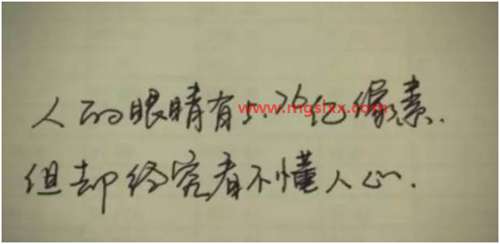 人的眼睛有5.76亿像素.
但却终究看不懂人心.
www.mgslxx.com